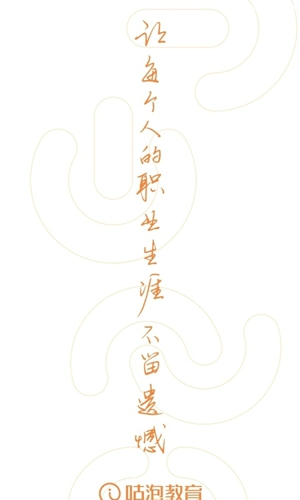 让每个人的职业生涯不留遗憾
咕泡教育